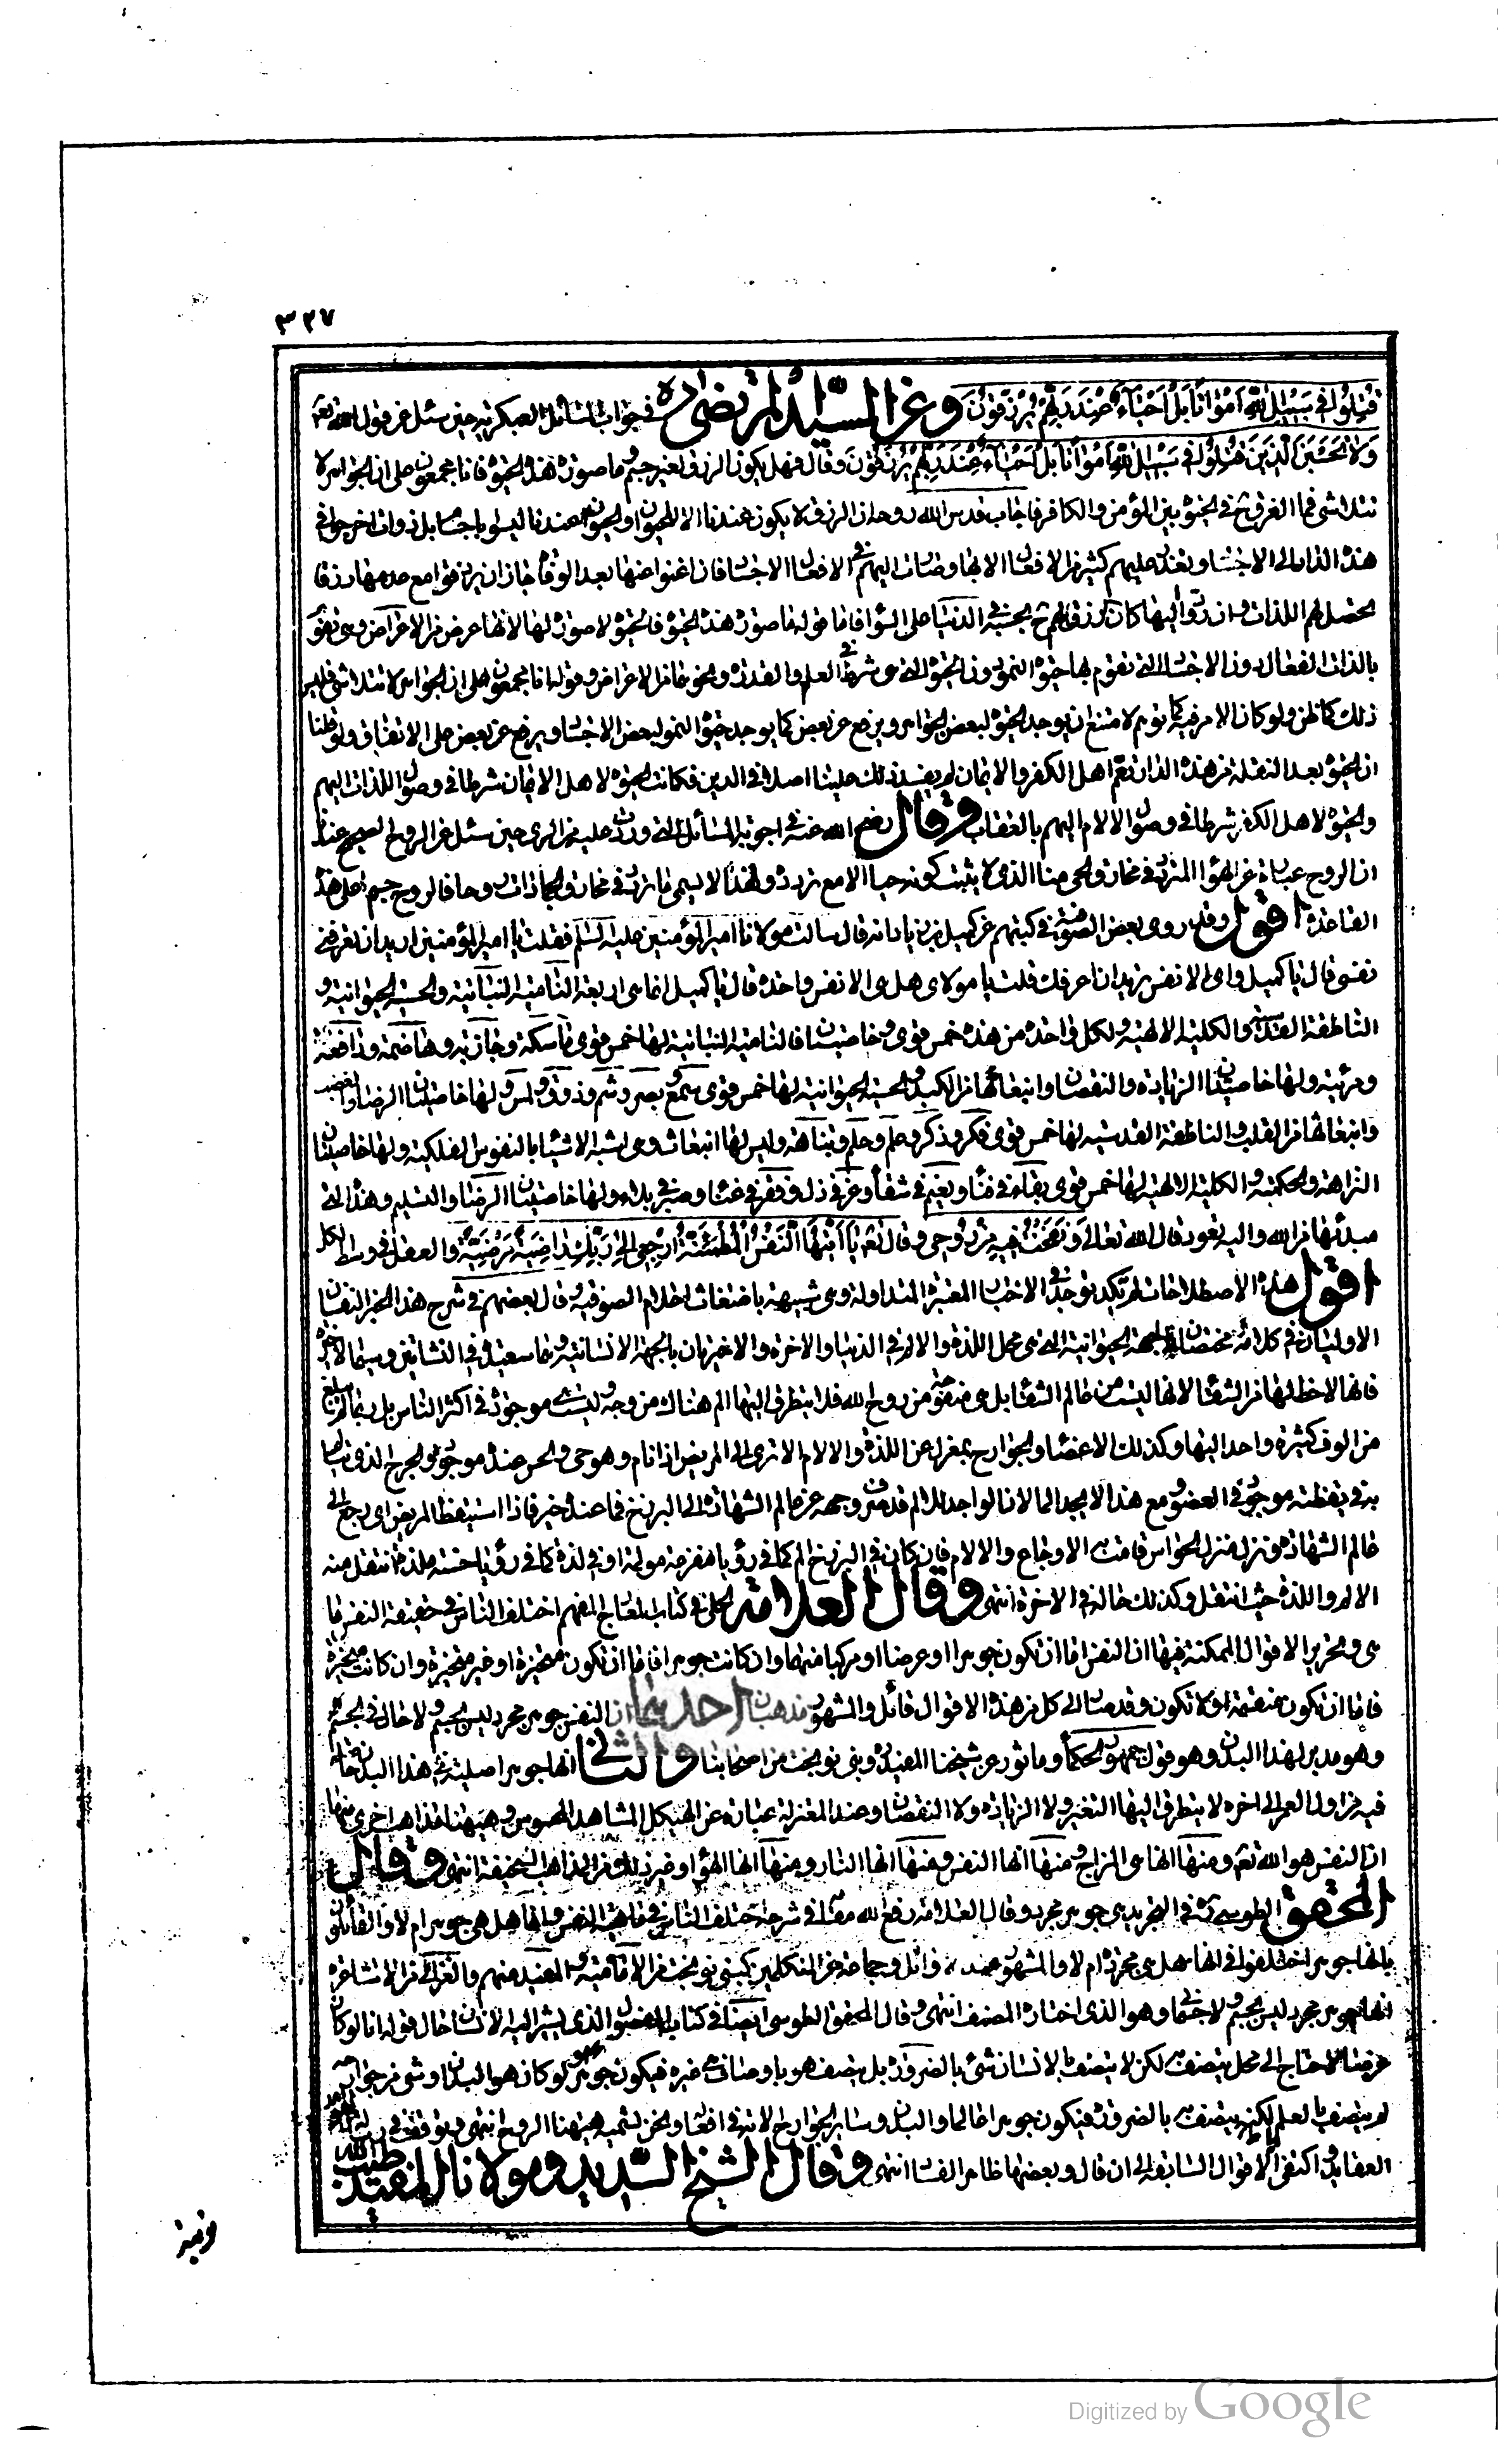 ٣٢٧
قتلوا فى سبيل الله امواتا بل احياء عند ربهم يرزقون وعن السيد المرتضى ره فى جواب المسائل العكبرية حين سئل عن قول الله تعم
ولا تحسبن الذين قتلوا فى سبيل الله امواتا بل احياء عند ربهم يرزقون وقال فهل يكون الرزق لغير جسم وما صورة هذه الحيوة فانا مجمعون على ان الجواهر لا
تتلاشى فما الفرق ح فى الحيوة بين المؤمن والكافر فاجاب قدس الله روحه ان الرزق لا يكون عندنا الا للحيوان والحيوان عندنا ليسوا باجسام بل ذوات اخرجوا فى
هذه الدار الى الاجساد وتعذر عليهم كثير من الافعال الا بها وصارت اليهم فى الافعال الاجساد فان اغنوا عنها بعد الوفاة جاز ان يرزقوا مع عدمها رزقا
يحصل لهم اللذات وان ردوا اليها كان الرزق لهم ح بحسبه فى الدنيا على السواء فاما قوله ما صورة هذه الحيوة فالحيوة لا صورة لها لانها عرض من الاعراض وهى تقوم
بالذات الفعال دون الاجساد التى تقوم بها حيوة النمو دون الحيوة التى هى شرط فى العلم والقدرة ونحوهما من الاعراض وقوله انا مجمعون على ان الجواهر لا تتلاشى فليس
ذلك كما ظن ولو كان الامر فيه كما توهم لامتنع ان يوجد الحيوة لبعض الجواهر ويرفع عن بعض كما يوجد حيوة النمو لبعض الاجساد ويرفع عن بعض على الاتفاق ولو قلنا
ان الحيوة بعد النقلة من هذه الدار تعم اهل الكفر والايمان لم يفسد ذلك علينا اصلا فى الدين فكانت الحيوة لاهل الايمان شرطا فى وصول اللذات اليهم
والحيوة لاهل الكفر شرطا فى وصول الالام اليهم بالعقاب وقال رضى الله عنه فى اجوبة المسائل التى وردت عليه من الرى حين سئل عن الروح الصحيح عندنا
ان الروح عبارة عن الهواء المتردد فى مخارق الحى منا الذى لا يثبت كونه حيا الا مع تردده ولهذا لا يسمى ما تردد فى مخارق الجمادات روحا فالروح جسم على هذه
القاعدة اقول وقد روى بعض الصوفية فى كتبهم عن كميل بن زياد انه قال سالت مولانا امير المؤمنين عليه السلم فقلت يا امير المؤمنين اريد ان تعرفنى
نفسى قال يا كميل واى الانفس تريد ان اعرفك قلت يا مولاى هل هى الا نفس واحدة قال يا كميل انما هى اربعة النامية النباتية والحسية الحيوانية و
الناطقة القدسية والكلية الالهية ولكل واحدة من هذه خمس قوى وخاصيتان فالنامية النباتية لها خمس قوى ماسكة وجاذبة وهاضمة ودافعة
ومربية ولها خاصيتان الزيادة والنقصان وانبعاثها من الكبد والحسية الحيوانية لها خمس قوى سمع وبصر وشم وذوق ولمس ولها خاصيتان الرضا والغضب
وانبعاثها من القلب والناطقة القدسية لها خمس قوى فكر وذكر وعلم وحلم ونباهة وليس لها انبعاث وهى اشبه الاشياء بالنفوس الفلكية ولها خاصيتان
النزاهة والحكمة والكلية الالهية لها خمس قوى بقاء فى فناء ونعيم فى شقاء وعز فى ذل وفقر فى غناء وصبر فى بلاء ولها خاصيتان الرضا والتسليم وهذه التى
مبدئها من الله واليه تعود قال الله تعالى ونفخت فيه من روحى وقال تعم يا ايتها النفس المطمئنة ارجعى الى ربك راضية مرضية والعقل فى وسط الكل
اقول هذه الاصطلاحات لم تكد توجد فى الاخبار المعتبرة المتداولة وهى شبيهة باضغاث احلام الصوفية وقال بعضهم فى شرح هذا الخبر النفسان
الاوليان فى كلامه مختصان بالجهة الحيوانية التى هى محل اللذة والالم فى الدنيا والاخرة والاخيرتان بالجهة الانسانية وهما سعيدة فى النشاتين وسيما الاخيرة
فانها لا حظ لها من الشقاء لانها ليست من عالم الشقاء بل هى منفوخة من روح الله فلا يتطرق اليها الم هناك من وجه وليست موجودة فى اكثر الناس بل ربما لم يبلغ
من الوف كثيرة واحد اليها وكذلك الاعضاء والجوارح بمعزل عن اللذة والالام الا ترى الى المريض اذا نام وهو حى والحس عنده موجود والجرح الذى يتالم
به فى يقظته موجود فى العضو ومع هذا لا يجد الما لان الواجد للالم قد صرف وجهه عن عالم الشهادة الى البرزخ فما عنده خبر فاذا استيقظ المريض اى رجع الى
عالم الشهادة ونزل منزل الحواس قامت به الاوجاع والالام فان كان فى البرزخ الم كما فى رؤيا مفزعة مولمة او فى لذة كما فى رؤيا حسنة ملذة انتقل منه
الالم واللذة حيث انتقل وكذلك حاله فى الاخرة انتهى وقال العلامة الحلى فى كتاب معارج الفهم اختلف الناس فى حقيقة النفس ما
هى وتحرير الاقوال الممكنة فيها ان النفس اما ان تكون جوهرا او عرضا او مركبا منهما وان كانت جوهرا فاما ان تكون متحيزة او غير متحيزة وان كانت متحيزة
فاما ان تكون منقسمة او لا تكون وقد صار الى كل من هذه الاقوال قائل والمشهور مذهبان احدهما ان النفس جوهر مجرد ليس بجسم ولا حال فى الجسم
وهو مدبر لهذا البدن وهو قول جمهور الحكماء وماثور عن شيخنا المفيد وبنى نوبخت من اصحابنا والثانى انها جوهر اصلية فى هذا البدن حاصلة
فيه من اول العمر الى اخره لا يتطرق اليها التغير ولا الزيادة ولا النقصان وعند المعتزلة عبارة عن الهيكل المشاهد المحسوس وهيهنا مذاهب اخرى منها
ان النفس هو الله تعم ومنها انها هى المزاج ومنها انها النفس ومنها انها النار ومنها انها الهواء وغير ذلك من المذاهب السخيفة انتهى وقال
المحقق الطوسى ره فى التجريد هى جوهر مجرد وقال العلامة رفع الله مقامه فى شرحه اختلف الناس فى ماهية النفس وانها هل هى جوهر ام لا والقائلون
بانها جوهر اختلفوا فى انها هل هى مجردة ام لا والمشهور عند الاوائل وجماعة من المتكلمين كبنى نوبخت من الامامية والمفيد منهم والغزالى من الاشاعرة
انها جوهر مجرد ليس بجسم ولا جسمانى وهو الذى اختاره المصنف انتهى وقال المحقق الطوسى ايضا فى كتاب الفصول الذى يشير اليه الانسان حال قوله انا لو كان
عرضا لاحتاج الى محل يتصف به لكن لا يتصف بالانسان شئ بالضرورة بل يتصف هو باوصاف هى غيره فيكون جوهرا ولو كان هو البدن او شئ من جوارحه
لم يتصف بالعلم لكنه يتصف به بالضرورة فيكون جوهرا عالما والبدن وسائر الجوارح الاته فى افعاله ونحن نسميه هيهنا الروح انتهى وتوقف ره فى رسالة قواعد
العقايد واكتفى بالاقوال السابقة الى ان قال وبعضها ظاهر الفساد انتهى وقال الشيخ السديد ومولانا المفيد طيب الله